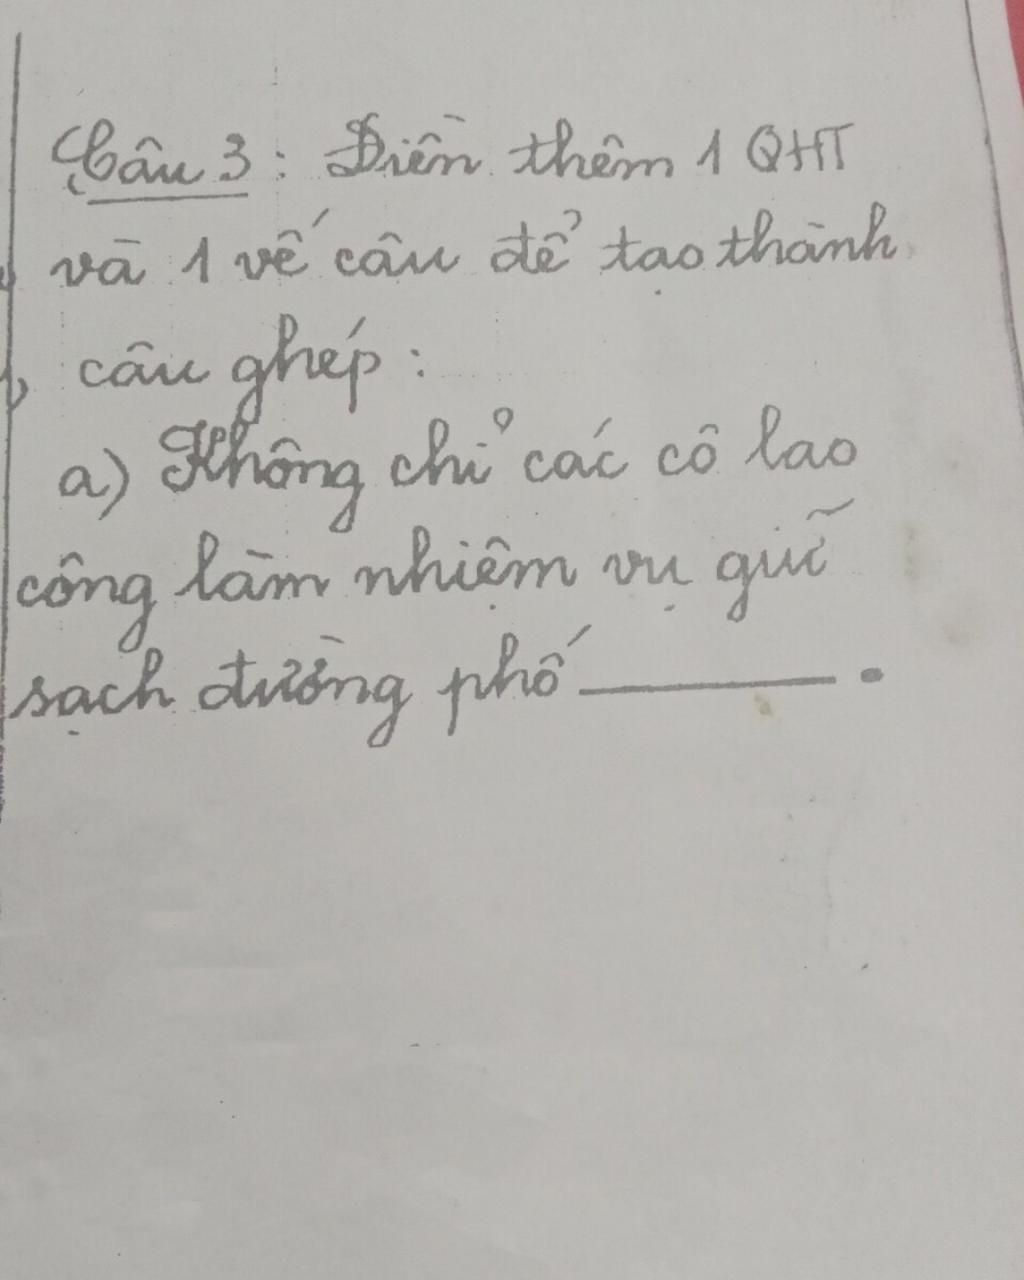 Câu 3: Điền thêm 1 QHT
và 1 vế câu để tạo thành
câu ghép:
a) Không chỉ các cô lao
công làm nhiệm vụ giữ
sạch đường phố ______.